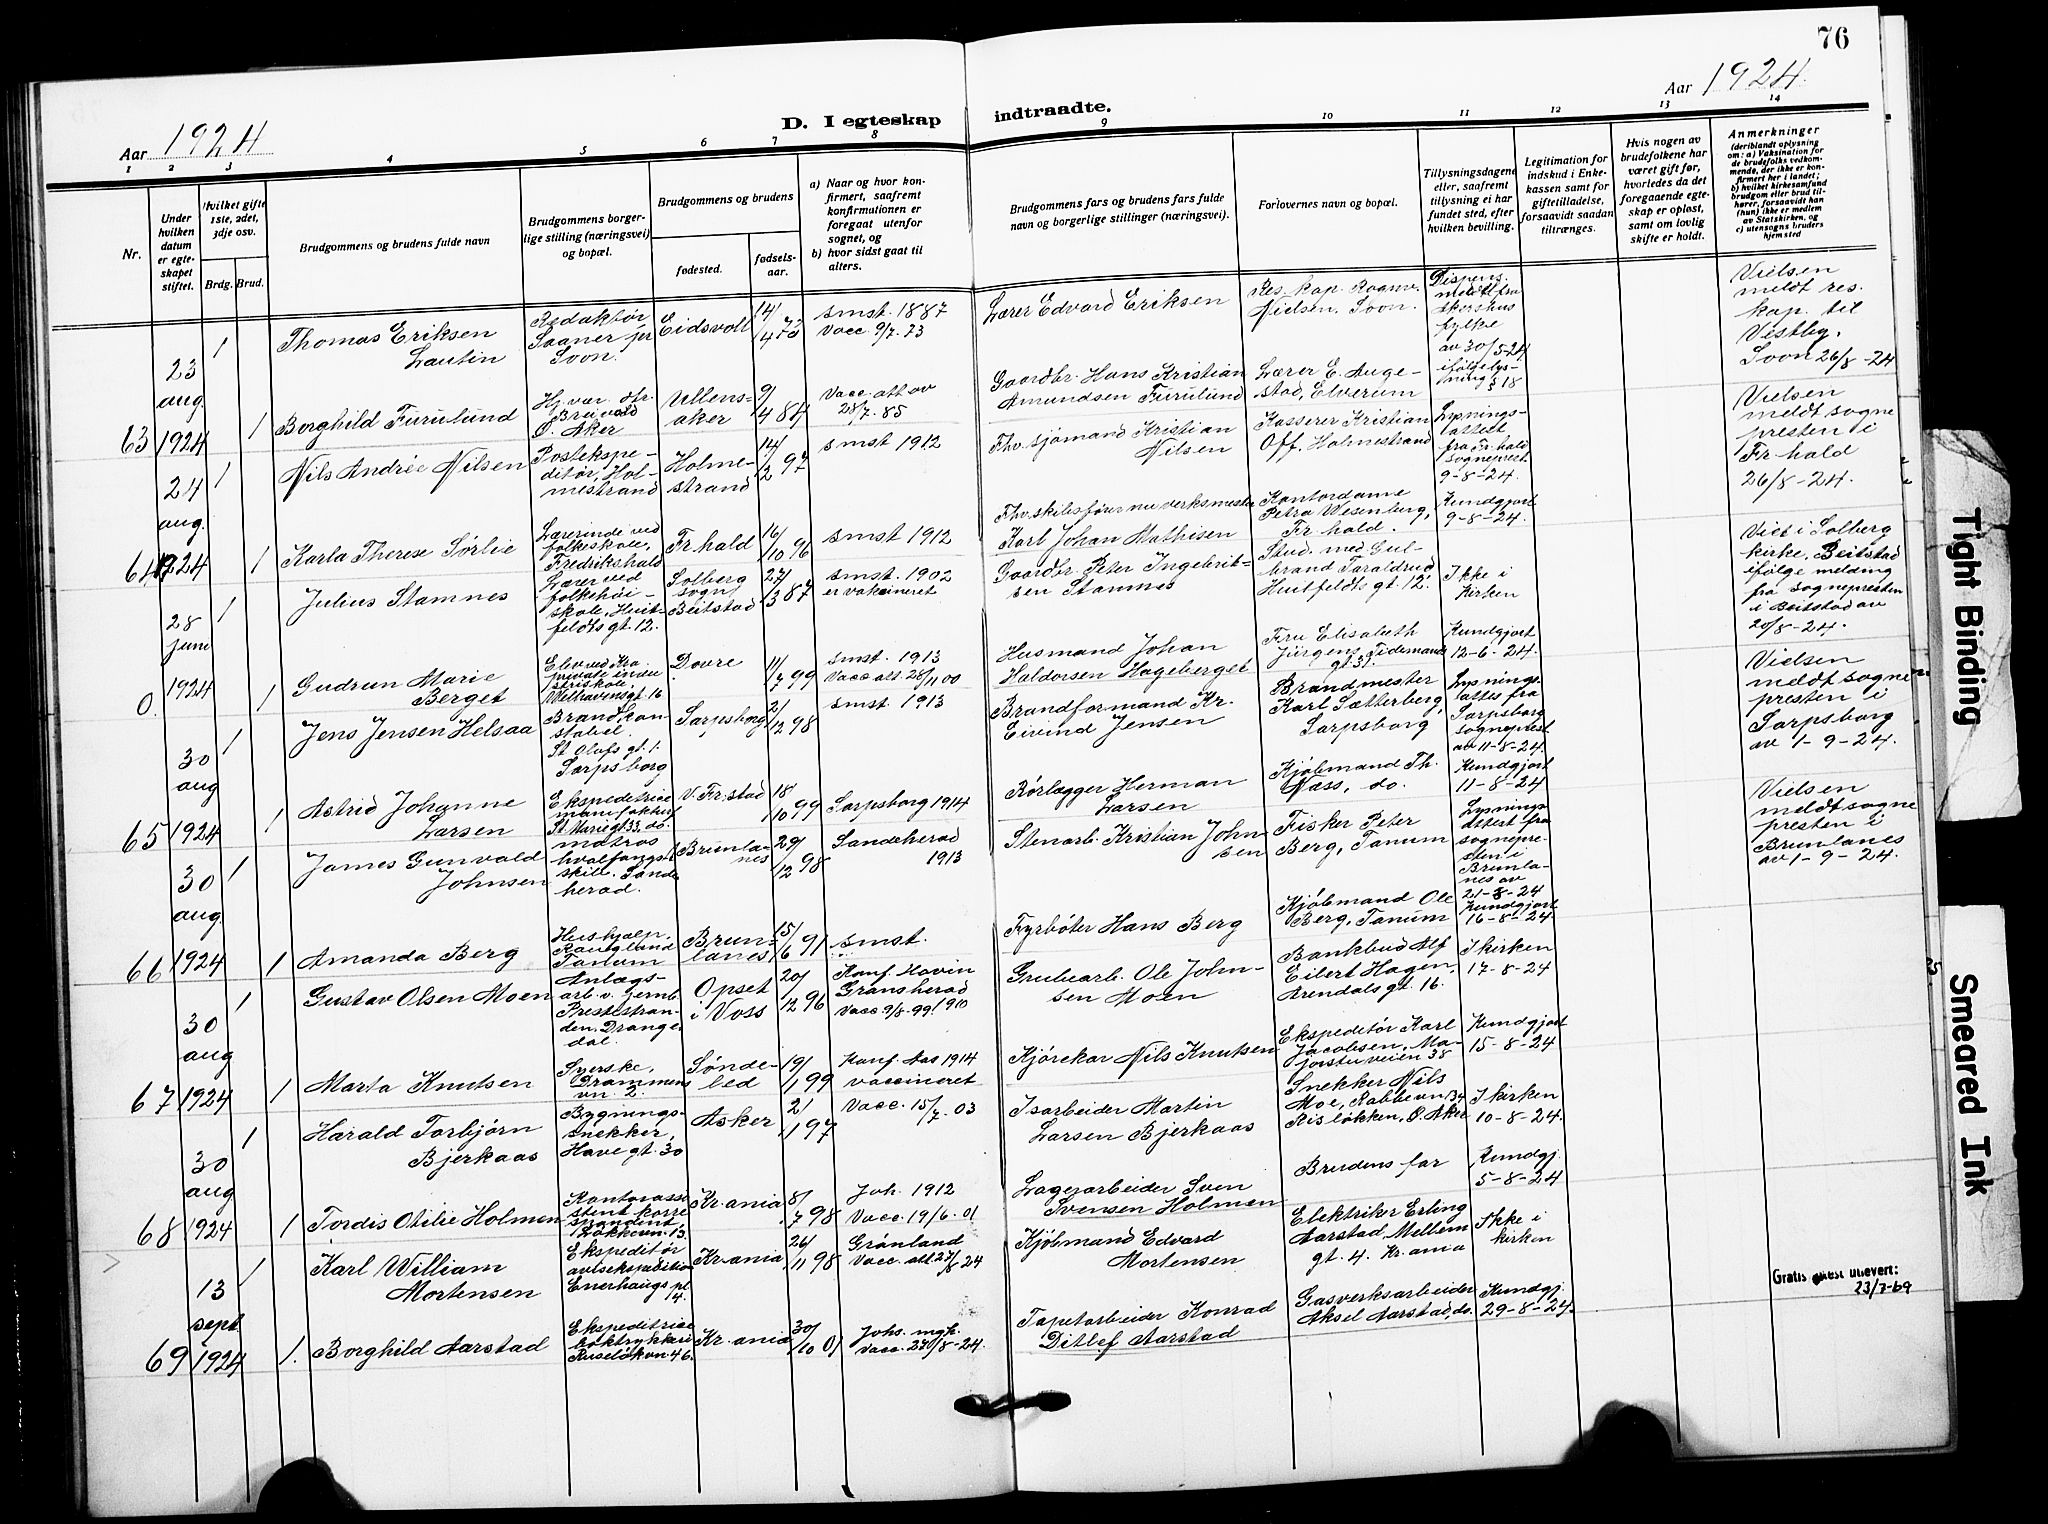 76
Aar 1924
D. I egteskap
indtraadte.
Aar 1924.
1 2 3 4 5 6 7 8 9 10 11 12 13 14
Nr.
Under hvilken datum er egteskapet stiftet.
Hvilket gifte 1ste, 2det, 3dje osv.
Brdg. Brud.
Brudgommens og brudens fulde navn
Brudgommens borgerlige stilling (næringsvei) og bopæl.
Brudgommens og brudens
fødested.
fødselsaar.
a) Naar og hvor konfirmert, saafremt konfirmationen er foregaat utenfor sognet, og
b) hvor sidst gaat til alters.
Brudgommens fars og brudens fars fulde navn og borgerlige stillinger (næringsvei).
Forlovernes navn og bopæl.
Tillysningsdagene eller, saafremt tillysning ei har fundet sted, efter hvilken bevilling.
Legitimation for indskud i Enkekassen samt for giftetilladelse, forsaavidt saadan tiltrænges.
Hvis nogen av brudefolkene har været gift før, hvorledes da det foregaaende egteskap er opløst, samt om lovlig skifte er holdt.
Anmerkninger
(deriblandt oplysning om: a) Vaksination for de brudefolks vedkommende, der ikke er konfirmert her i landet; b) hvilket kirkesamfund brudgom eller brud tilhører, forsaavidt han (hun) ikke er medlem av Statskirken, og c) utensogns bruders hjemsted
63
23 aug. 1924
1
Thomas Eriksen Lautin
Redaktør Saaner pr Soon.
Eidsvoll
14/4 73
smst. 1887
Vacc. 9/7. 73
Lærer Edvard Eriksen
Res. kap. Raanv. Nielsen, Soon.
Dispens. meldt fra Akershus fylke av 30/5-24 ifølge lysning § 18
Vielsen meldt res. kap. til Vestby, Soon 26/8-24
1
Borghild Furulund
Breivold Ø. Aker
Ullensaker
9/4 84
Vacc. att av 28/7. 85
Gaardbr. Hans Kristian Amundsen Furulund
Lærer E. Angestad, Elverum
64
24 aug. 1924
1
Nils Andrée Nilsen
Postekspeditør, Holmestrand
Holmestrand
14/2 97
smst 1912
Fhv. sjømand Kristian Nilsen
Kasserer Kristian Off. Holmestrand
Lysningsattest fra Fr.hald sogneprest 9-8-24.
Vielsen meldt sognepresten i Fr.hald 26/8-24.
1
Karla Therese Sørlie
Lærerinde ved folkeskole, Fredrikshald
Fr.hald
16/10 96
smst 1912
Karl Johan Mathisen
Kontordame Petra Wesenberg, Fr.hald.
Kundgjort 9-8-24.
0.
28 juni 1924
1
Julius Stamnes
Lærer ved folkehøiskole, Huitfeldts gt. 12.
Solberg sogn, Beitstad
27/3 87
smst. 1902
er vaksineret
Gaardbr. Peter Ingebritsen Stamnes
Stud. med Gulbrand Taraldrud Huitfeldts gt. 12.
Ikke i kirken
Viet i Solberg kirke, Beitstad ifølge melding fra sognepresten i Beitstad av 20/8-24.
1
Gudrun Marie Berget
Elev ved Kra. private industriskole. Welhavensgt. 16
Dovre
11/7 99
smst. 1913
Vacc. att. 28/11 00
Husmand Johan Haldorsen Hageberget
Fru Elisabeth Jürgens, Tidemands gt. 31.
Kundgjort 12-6-24.
65
30 aug 1924
1
Jens Jensen Helsaa
Brandkonstabel. St Olafs gt. 1. Sarpsborg
Sarpsborg
2/12 98
smst. 1913
Brandformand Kr. Eivind Jensen
Brandmester Karl Sætterberg, Sarpsborg
Lysningsattes fra Sarpsborg sogneprest av 11-8-24.
Vielsen meldt sognepresten i Sarpsborg av 1-9-24.
1
Astrid Johanne Larsen
Ekspeditrice manufaktur St Mariegt. 33, do.
V. Fr.stad
18/10 99
Sarpsborg 1914
Rørlægger Herman Larsen
Kjøbmand Th. Nass, do.
Kundgjort 11-8-24
66
30 aug. 1924
1
James Gunvald Johnsen
matros hvalfangst skite. Sandeherad.
Brunlanes
29/12 98
Sandeherad 1913
Stenarb. Kristian Johnsen
Fisker Peter Berg, Tanum
Lysningsattest fra sognepresten i Brunlanes av 21-8-24
Vielsen meldt sognepresten i Brunlanes av 1-9-24.
1
Amanda Berg
Hushjælp. Tanum
Brunlanes
15/6 91
smst.
Fyrbøter Hans Berg
Kjøbmand Ole Berg, Tanum
Kundgjort 16-8-24
67
30 aug 1924
1
Gustav Olsen Moen
Anlægsarb. v. jernb. Prestestranden. Drangedal.
Opset i Voss
20/12 96
Konf. Hovin Gransherad 1910
Vacc 9/8-99
Grubearb. Ole Johnsen Moen
Bankbud Alf Eilert Hagen, Arendals gt. 16.
I kirken 17-8-24
1
Marta Knutsen
Syerske, Drammensvn. 2.
Søndeled
19/1 99
Konf. Aas 1914
vaccineret
Kjørekar Nils Knutsen
Ekspeditør Karl Jacobsen, Majorstuveien 38
Kundgjort 15-8-24
68
30 aug 1924
1
Harald Torbjørn Bjerkaas
Bygningssnekker, Havegt. 30
Asker
2/1 97
Vacc. 15/7. 03
Isarbeider Martin Larsen Bjerkaas
Snekker Nils Moe, Risløkken, Ø. Aker
I kirken 10-8-24.
1
Tordis Otilie Holmen
Kontorassistent korrespondent Løkkevn. 13.
Kr.ania
8/7 98
Joh. 1912
Vacc. 19/6. 01
Lagerarbeider Sven Svensen Holmen
Brudens far
Kundgj. 5-8-24
69
13 sept. 1924
1
Karl William Mortensen
Ekspeditør avisekspedition Enerhaugspl. 4.
Kr.ania
26/11 98
Grønland
Vacc. att 27/8 24
Kjøbmand Edvard Mortensen
Elektriker Erling Aarstad, Mellemgt. 4. Kr.ania
Ikke i kirken
1.
Borghild Aarstad
Ekspeditrice boktrykkeri Ruseløkvn. 46.
Kr.ania
30/10 01
Johs. mgk.
Tapetarbeider Konrad Ditlef Aarstad
Gasverksarbeider Aksel Aarstad, do.
Kundgj. 29-8-24.
Gratis attest utlevert:
23/7-69
Tight Binding
Smeared Ink